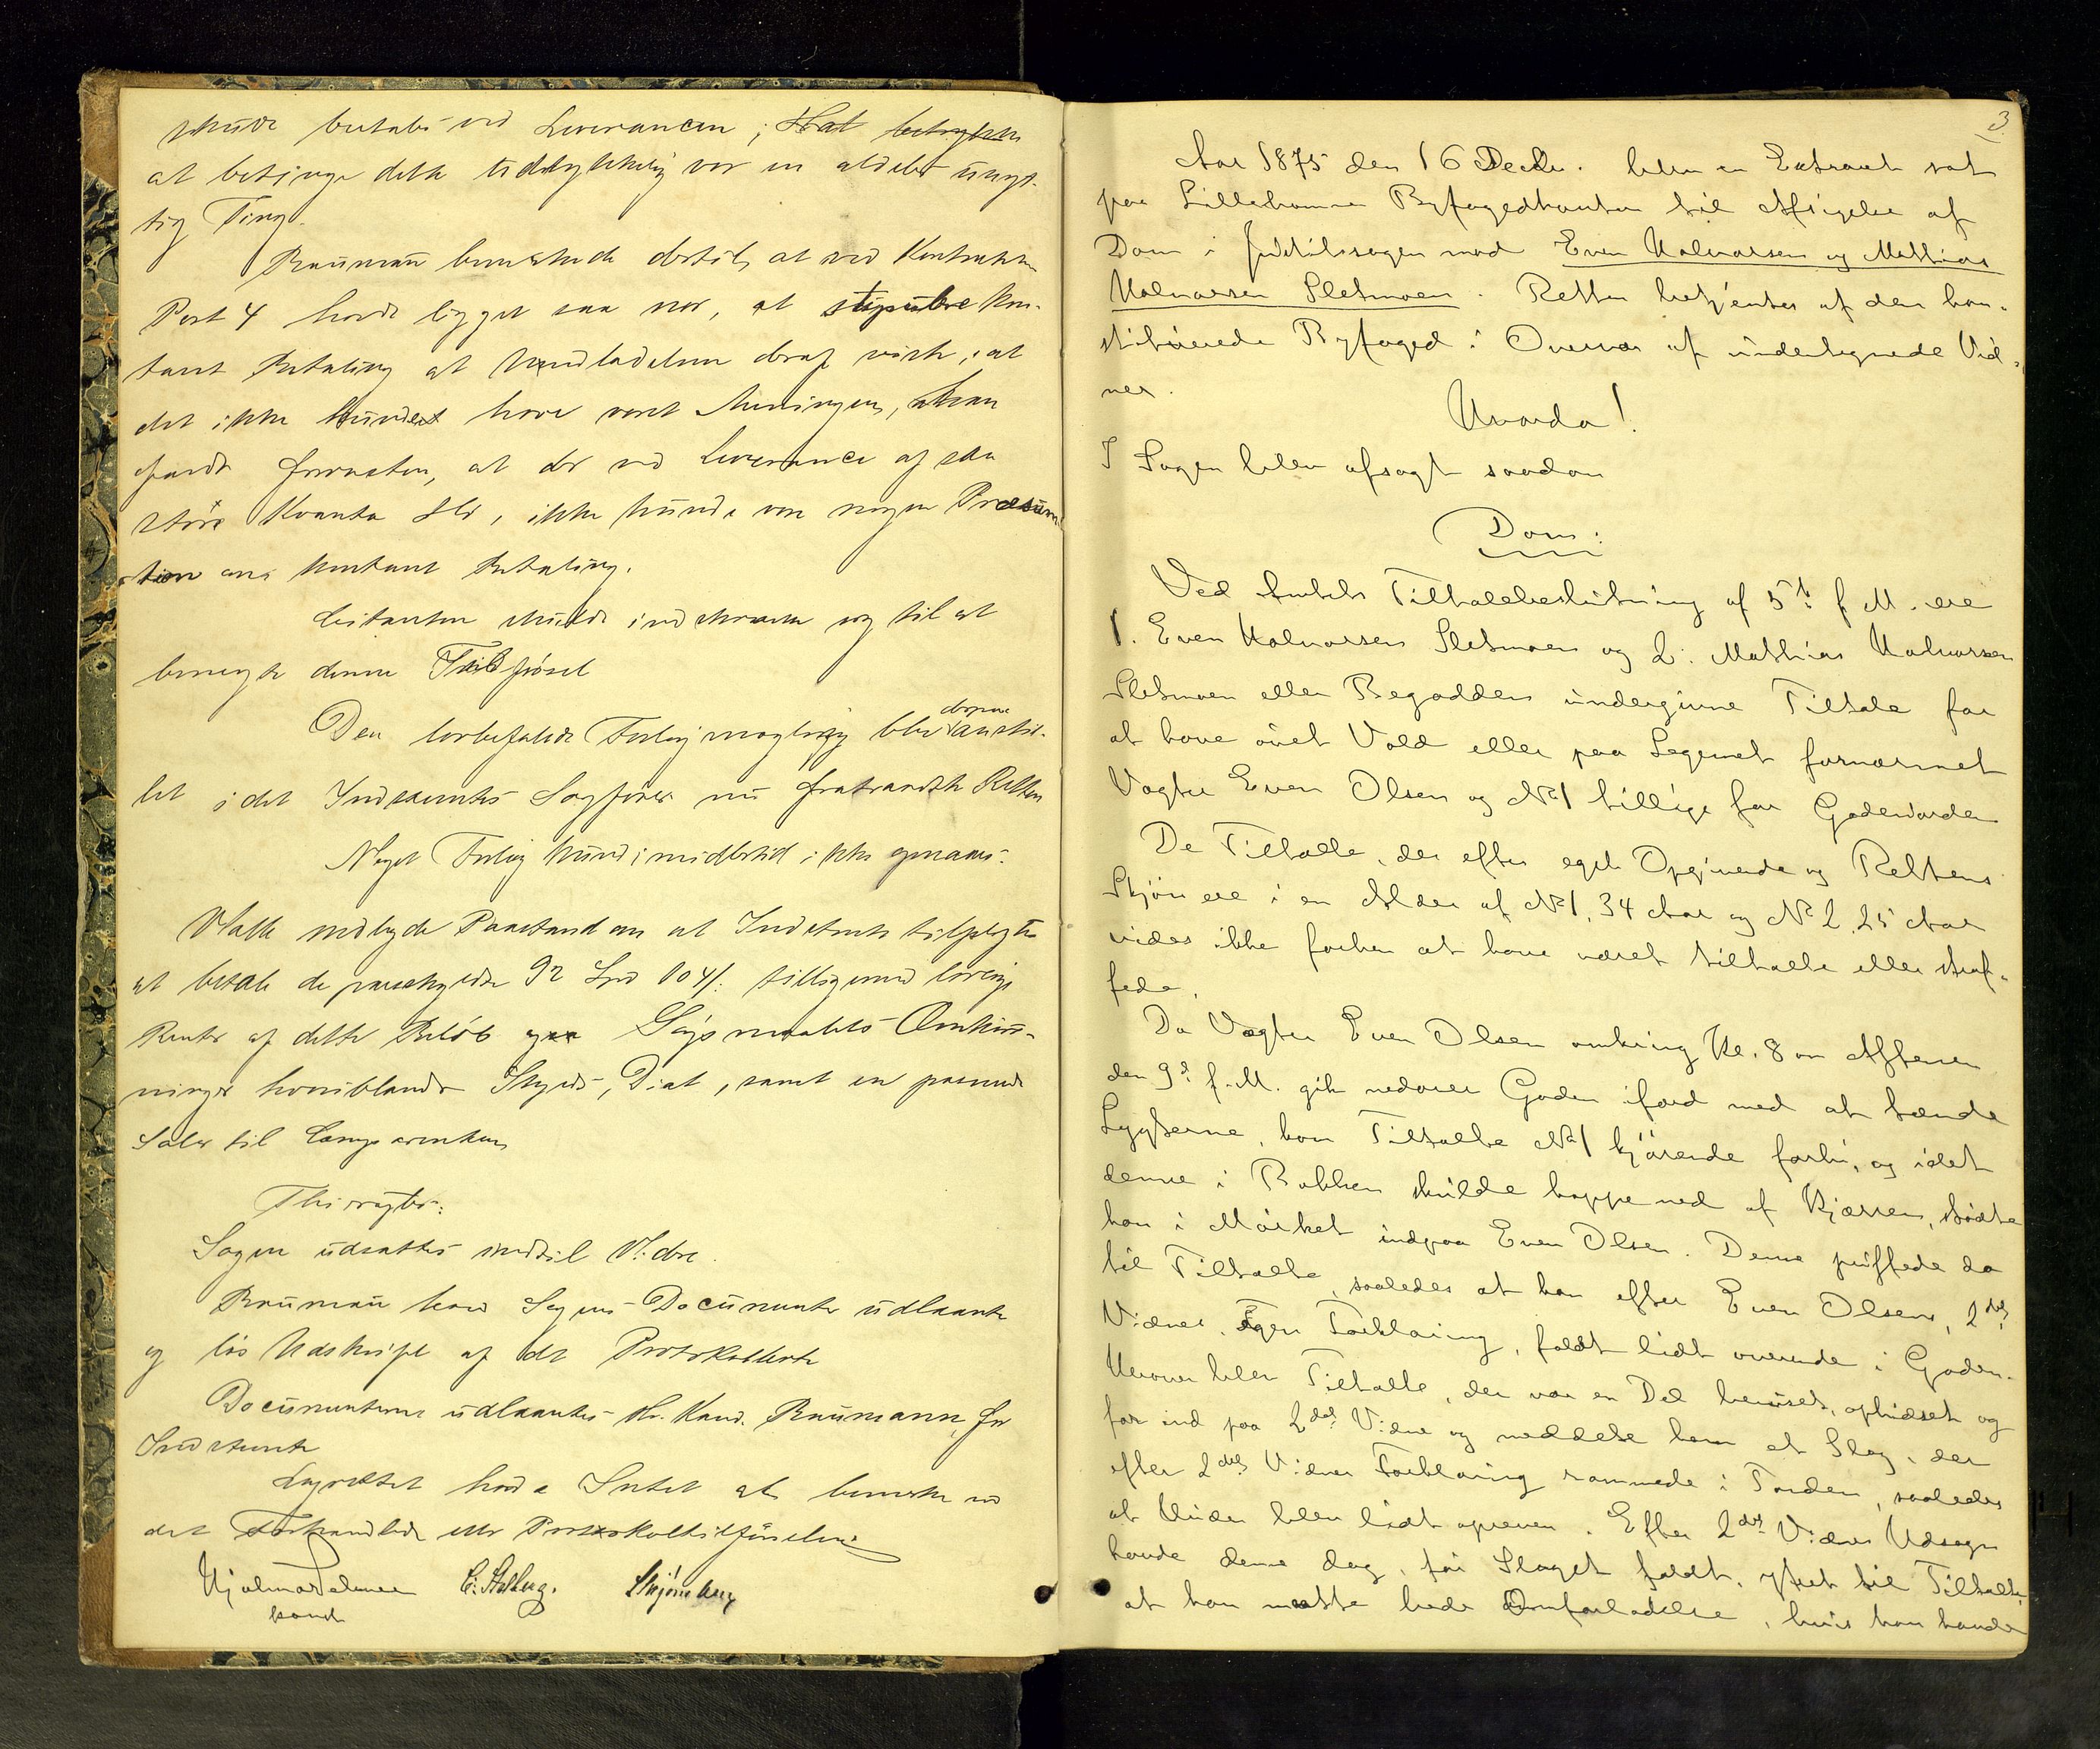 skulde betales ved Leverancen; Skal betrykke
at betinge dette udtrykkelig var en aldeles unyt-
tig Ting.
Baumann bemærkede dertil, at ved Kontrakten
Post 4 havde ligget saa nær, at stipulere kon-
tant Betaling at Undladelsen deraf viste, at
det ikke kundet have været Meningen,
forøvrigt, at der ved Leverance af saa
store Kvanta Øl, ikke kunde være nogen Præsum-
tion om kontant Betaling.
Citanten skulde indskrænke sig til at
benegte denne Tilførsel
Den lovbefalede Forligsmægling blev derpaa anstil-
let idet Indstevntes Sagfører nu fratraadte Retten
Noget Forlig kunde imidlertid ikke opnaaes.
nedlagde Paastand om at Indstevnte tilpligtes
at betale de paaskyldte 92 Spd 104 /: tilligemed lovlige
Renter af dette Beløb og Søgsmaalets Omkost-
ninger heriblandt Skyds, Diæt, samt en passende
Salær til
Thi vragtes:
Sagen udsættes indtil Videre.
Baumann havde Sagens Documenter udlaante
og løs Udskrift af det Protokollerte
Documenterne udlaantes Hr. Kand. Baumann for
Indstevnte
Lagrettet havde Intet at bemærke ved
det Forhandlede eller Protokoltilførslene
Hjalmar
const
3
Aar 1875 den 16 Decbr. blev en Extraret sat
paa Lillehammer Byfogedkontor til Afsigelse af
Dom i Justitssagen mod Even Halvorsen og Mathias
Halvorsen Sletmoen. Retten betjentes af den kon-
stituerede Byfoged i Overvær af undertegnede Vid-
ner.
Hvorda!
I Sagen blev afsagt saadan
Dom:
Ved Amtets Tiltalebeslutning af 5te f. M. ere
1. Even Halvorsen Sletmoen og 2. Mathias Halvorsen
Sletmoen eller Bøgadden undergivne Tiltale for
at have øvet Vold eller paa Legemet fornærmet
Vægter Even Olsen og No 1 tillige for Gadeuorden
De Tiltalte, der efter eget Opgivende og Rettens
Skjøn ere i en Alder af No 1, 34 Aar og No 2, 25 Aar
vides ikke forhen at have været tiltalte eller straf-
fede.
Da Vægter Even Olsen omkring Kl. 8 om Aftenen
den 9de f. M. gik nedover Gaden ifærd med at tænde
Lygterne, kom Tiltalte No 1 kjørende forbi, og idet
denne i Bakken skulde hoppe ned af Kjærren, stødte
han i Mørket indpaa Even Olsen. Denne puffede da
til Tiltalte, saaledes at han efter Even Olsens, 2det
Vidnes, Egen Forklaring, faldt lidt overende i Gaden.
Herover blev Tiltalte, der var en Del beruset, ophidset og
for ind paa 2det Vidne og meddelte ham et Slag, der
efter 2det Vidnes Forklaring rammede i Panden, saaledes
at Huden blev lidt opreven. Efter 2det Vidnes Udsagn
havde denne dog, før Slaget faldt, ytret til Tiltalte,
at han maatte bede Om forladelse, hvis han havde